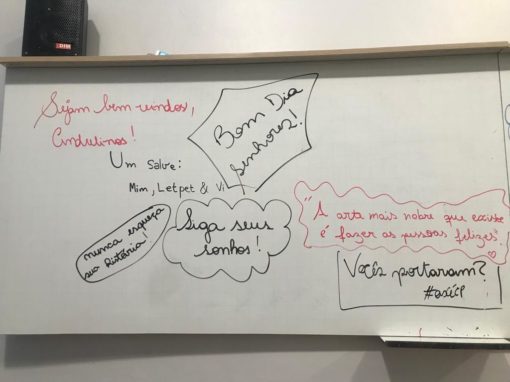 Sejam bem-vindos,
Andulinos!
Um salve:
Mim, Letpet & Vi
Bom Dia
senhores!
nunca esqueça
sua história!
Siga seus
sonhos!
"A arta mais nobre que existe
é fazer as pessoas felizes".
Vocês portaram?